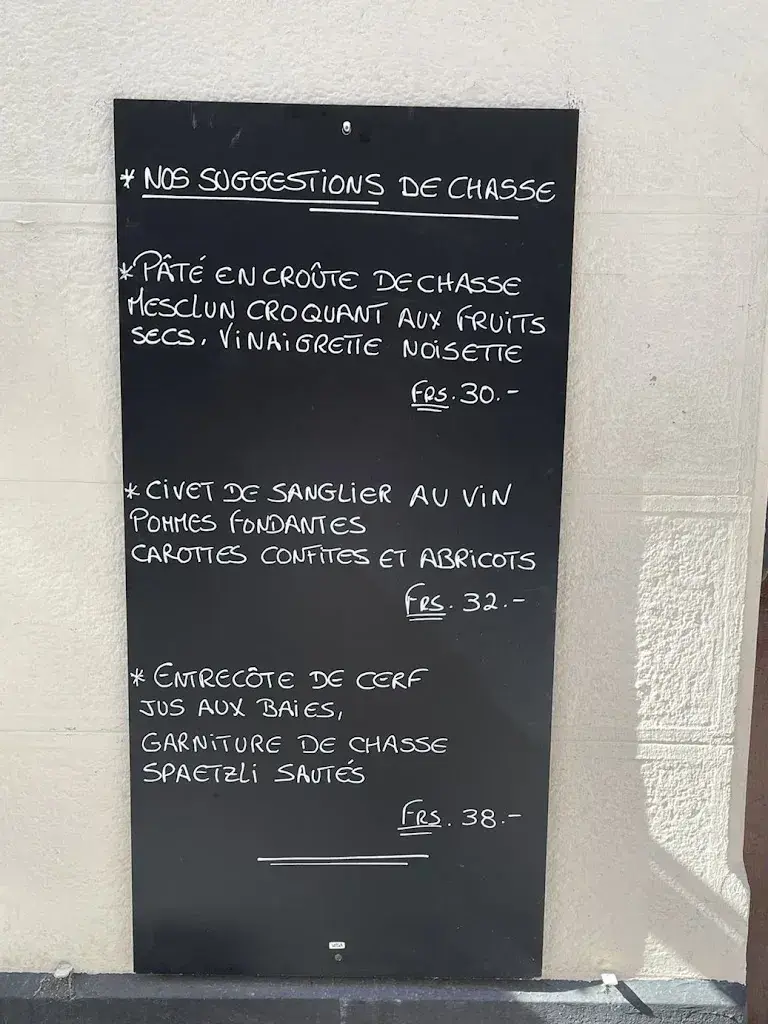 * NOS SUGGESTIONS DE CHASSE
* PÂTÉ EN CROÛTE DE CHASSE
MESCLUN CROQUANT AUX FRUITS
SECS, VINAIGRETTE NOISETTE
FRS. 30.-
* CIVET DE SANGLIER AU VIN
POMMES FONDANTES
CAROTTES CONFITES ET ABRICOTS
FRS. 32.-
* ENTRECÔTE DE CERF
JUS AUX BAIES,
GARNITURE DE CHASSE
SPAETZLI SAUTÉS
FRS. 38.-